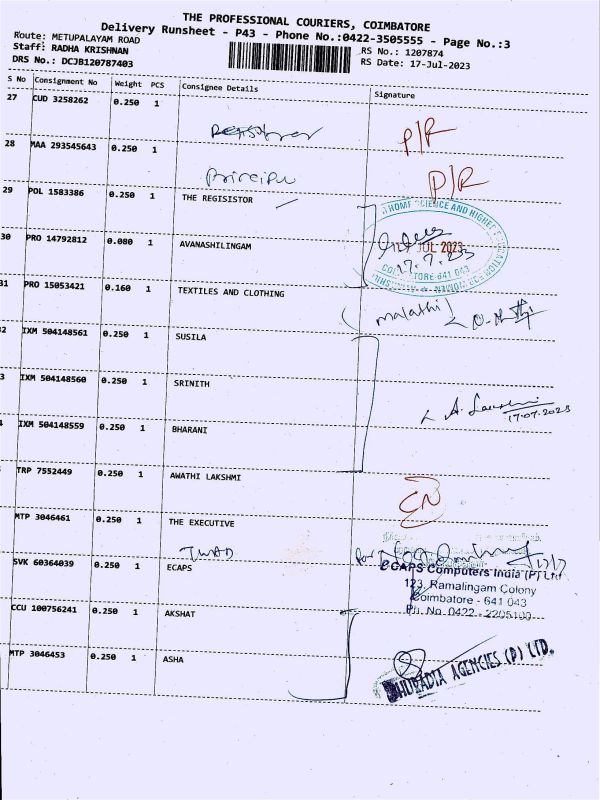 THE PROFESSIONAL COURIERS, COIMBATORE
Delivery Runsheet - P43 - Phone No.:0422-3505555 - Page No.:3
Route: METUPALAYAM ROAD
Staff: RADHA KRISHNAN
RS No.: 1207874
DRS No.: DCJB120787403
RS Date: 17-Jul-2023
S No Consignment No Weight PCS Consignee Details Signature
27 CUD 3258262 0.250 1
P/R
28 MAA 293545643 0.250 1
P/R
29 POL 1583386 0.250 1 THE REGISISTOR
HOME SCIENCE AND HIGHER
30 PRO 14792812 0.080 1 AVANASHILINGAM
17 JUL 2023
17.7.23
641 043
31 PRO 15053421 0.160 1 TEXTILES AND CLOTHING
malathi
2 IXM 504148561 0.250 1 SUSILA
3 IXM 504148560 0.250 1 SRINITH
17.07.2023
IXM 504148559 0.250 1 BHARANI
TRP 7552449 0.250 1 AWATHI LAKSHMI
MTP 3046461 0.250 1 THE EXECUTIVE
TWAD
SVK 60364039 0.250 1 ECAPS
ECAPS Computers India (P) Ltd
123, Ramalingam Colony
Coimbatore - 641 043
Ph. No. 0422 - 2205100
CCU 100756241 0.250 1 AKSHAT
MTP 3046453 0.250 1 ASHA
AGENCIES (P) LTD.